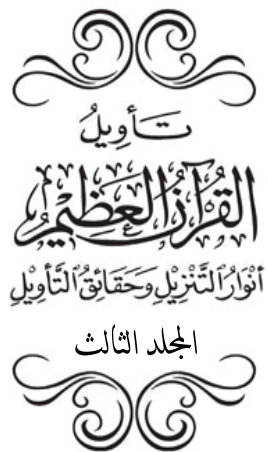 تَأويلُ
القُرآنُ العَظِيمُ
أنْوَارُ التَّنْزِيْلِ وَحَقَائِقُ التَّأْوِيْلِ
المجلد الثالث